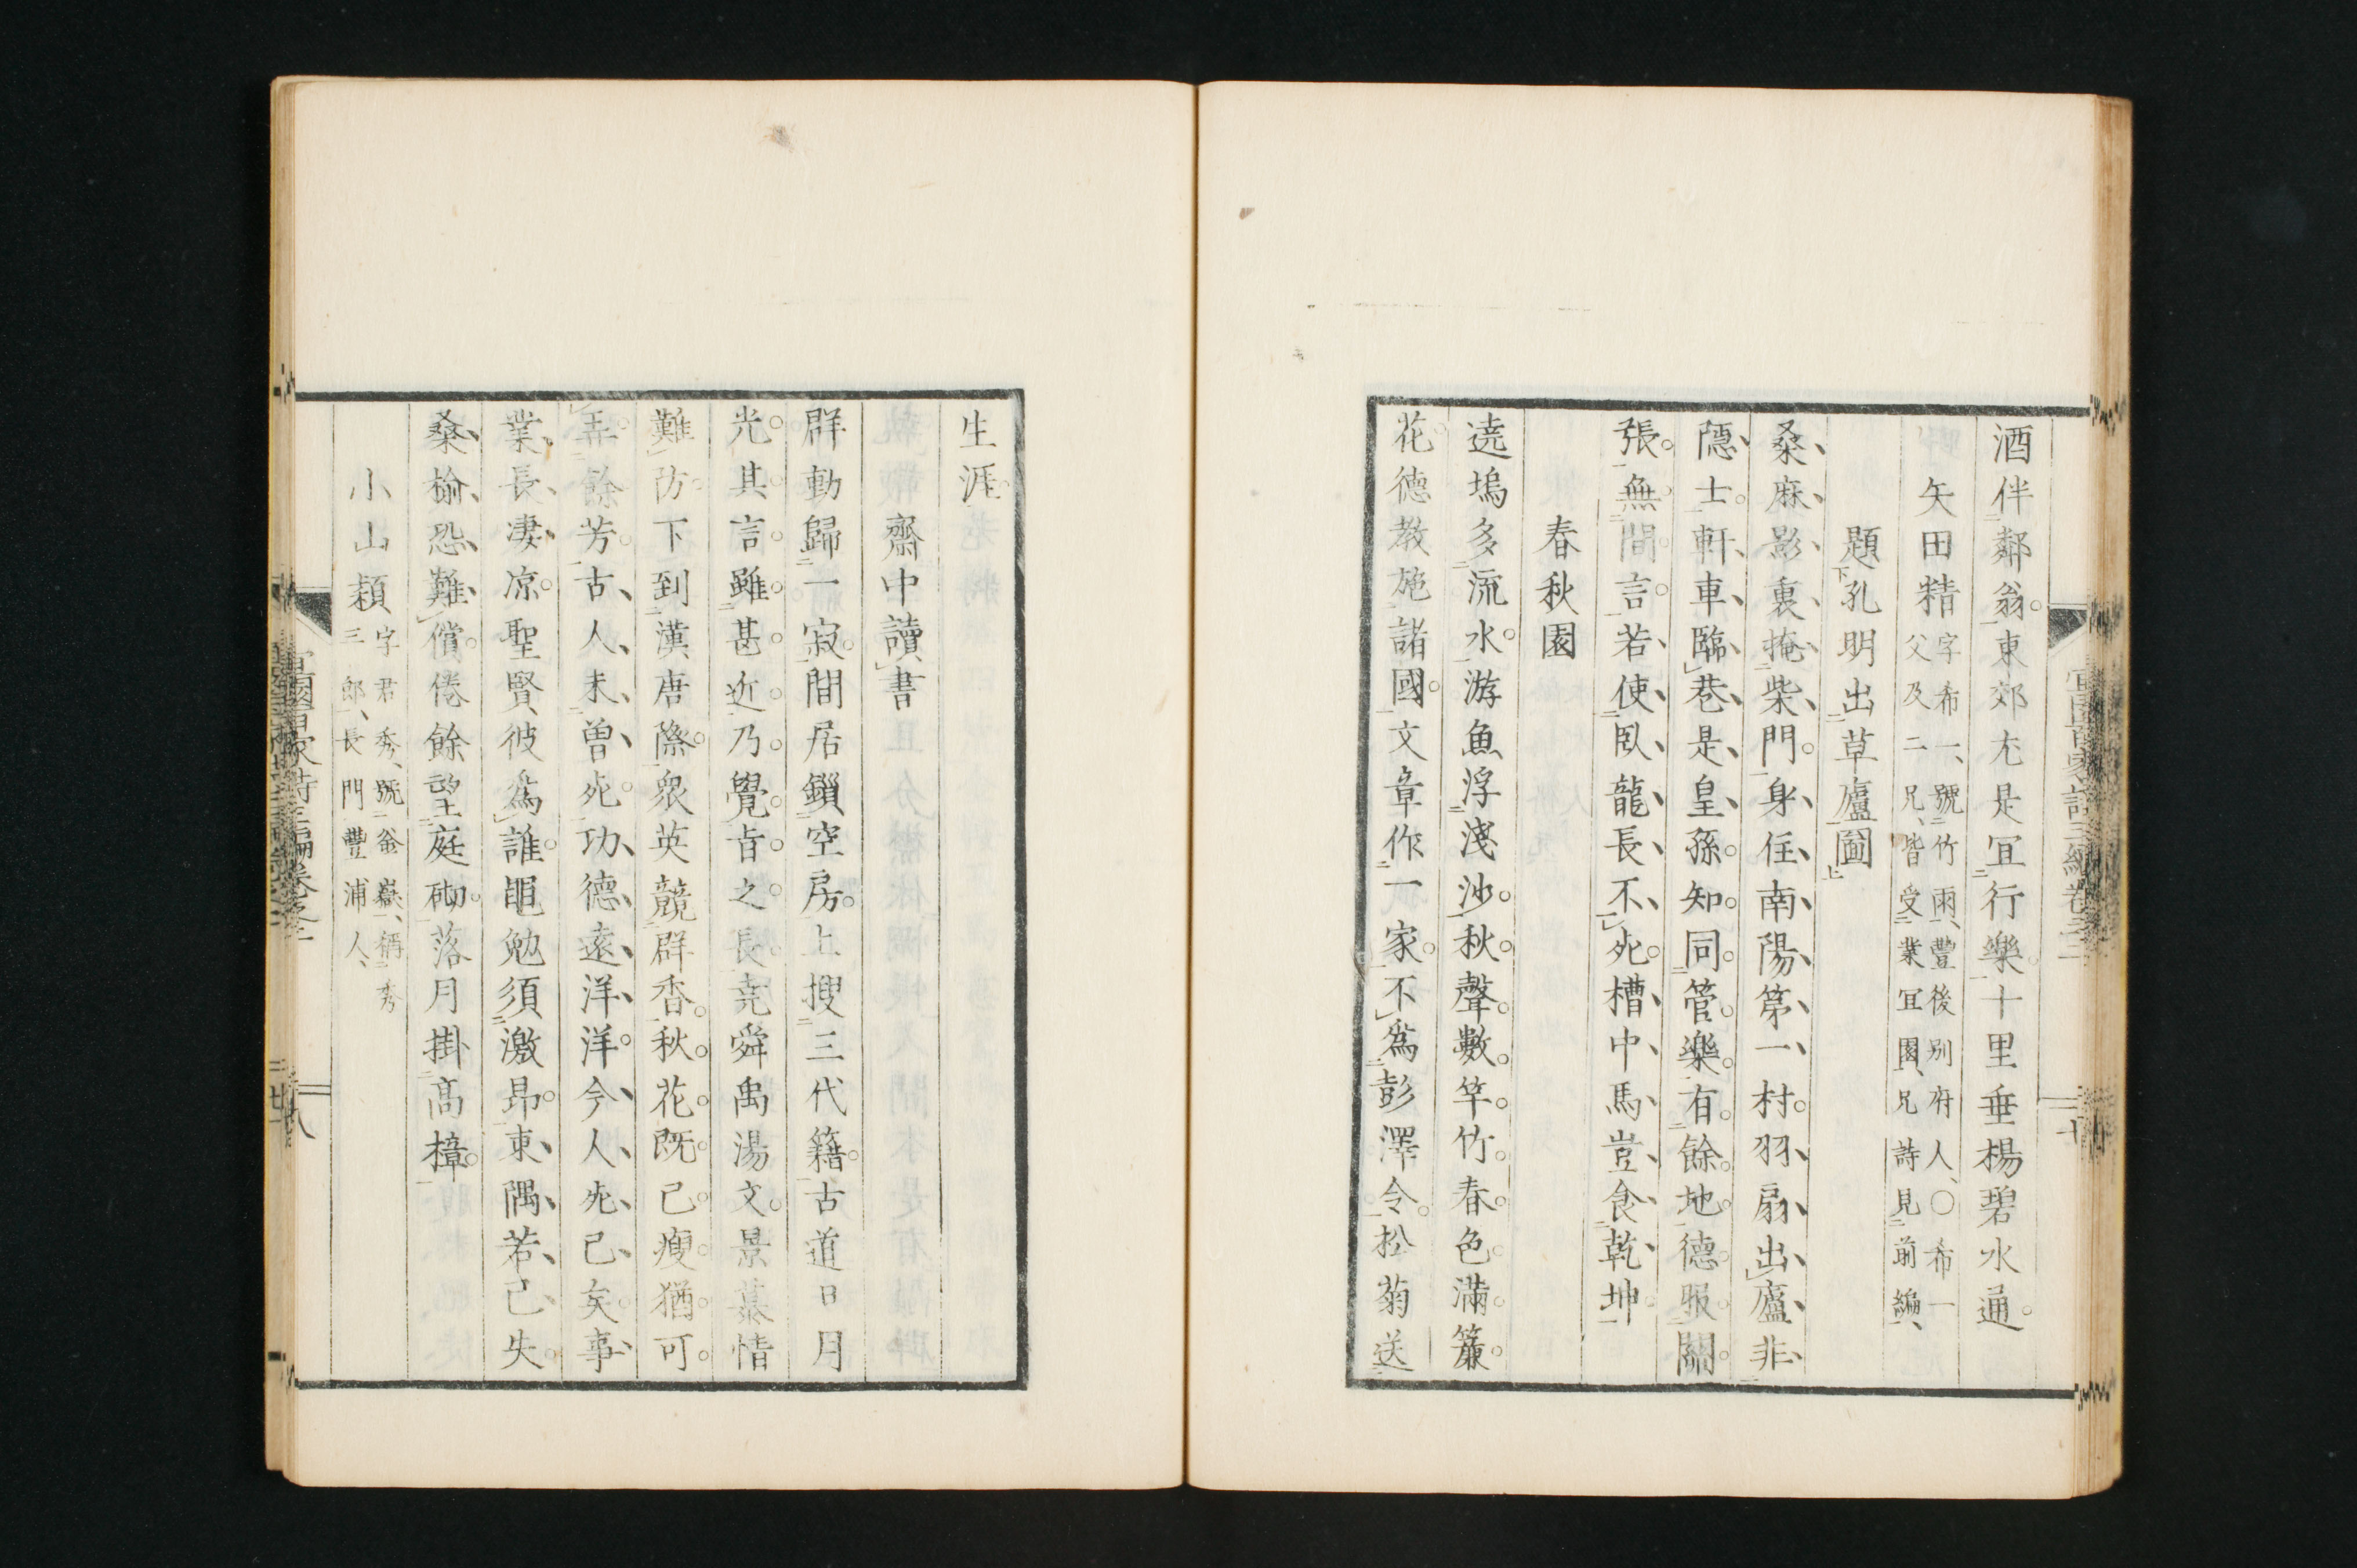 酒伴鄰翁東郊尤是宜行樂十里垂楊碧水通
矢田精字希一、號竹雨、豐後別府人、〇希一
父及二兄、皆受業宜園、兄詩見前編、
題孔明出草廬圖
桑麻影裏掩柴門身住南陽第一村羽扇出廬非
隱士軒車臨巷是皇孫知同管樂有餘地德服關
張無間言若使臥龍長不死槽中馬豈食乾坤
春秋園
遶塢多流水游魚浮淺沙秋聲數竿竹春色滿簾
花德教施諸國文章作一家不爲彭澤令松菊送
生涯
齋中讀書
群動歸一寂間居鎖空房上搜三代籍古道日月
光其言雖甚近乃覺旨之長堯舜禹湯文景慕情
難防下到漢唐際衆英競群香秋花既已瘦猶可
弄餘芳古人未曾死功德遠洋洋今人死已矣事
業長凄凉聖賢彼爲誰黽勉須激昂東隅若已失
桑榆恐難償倦餘望庭砌落月掛高樟
小山潁字君秀、號釜嶽、稱秀
三郎、長門豐浦人、